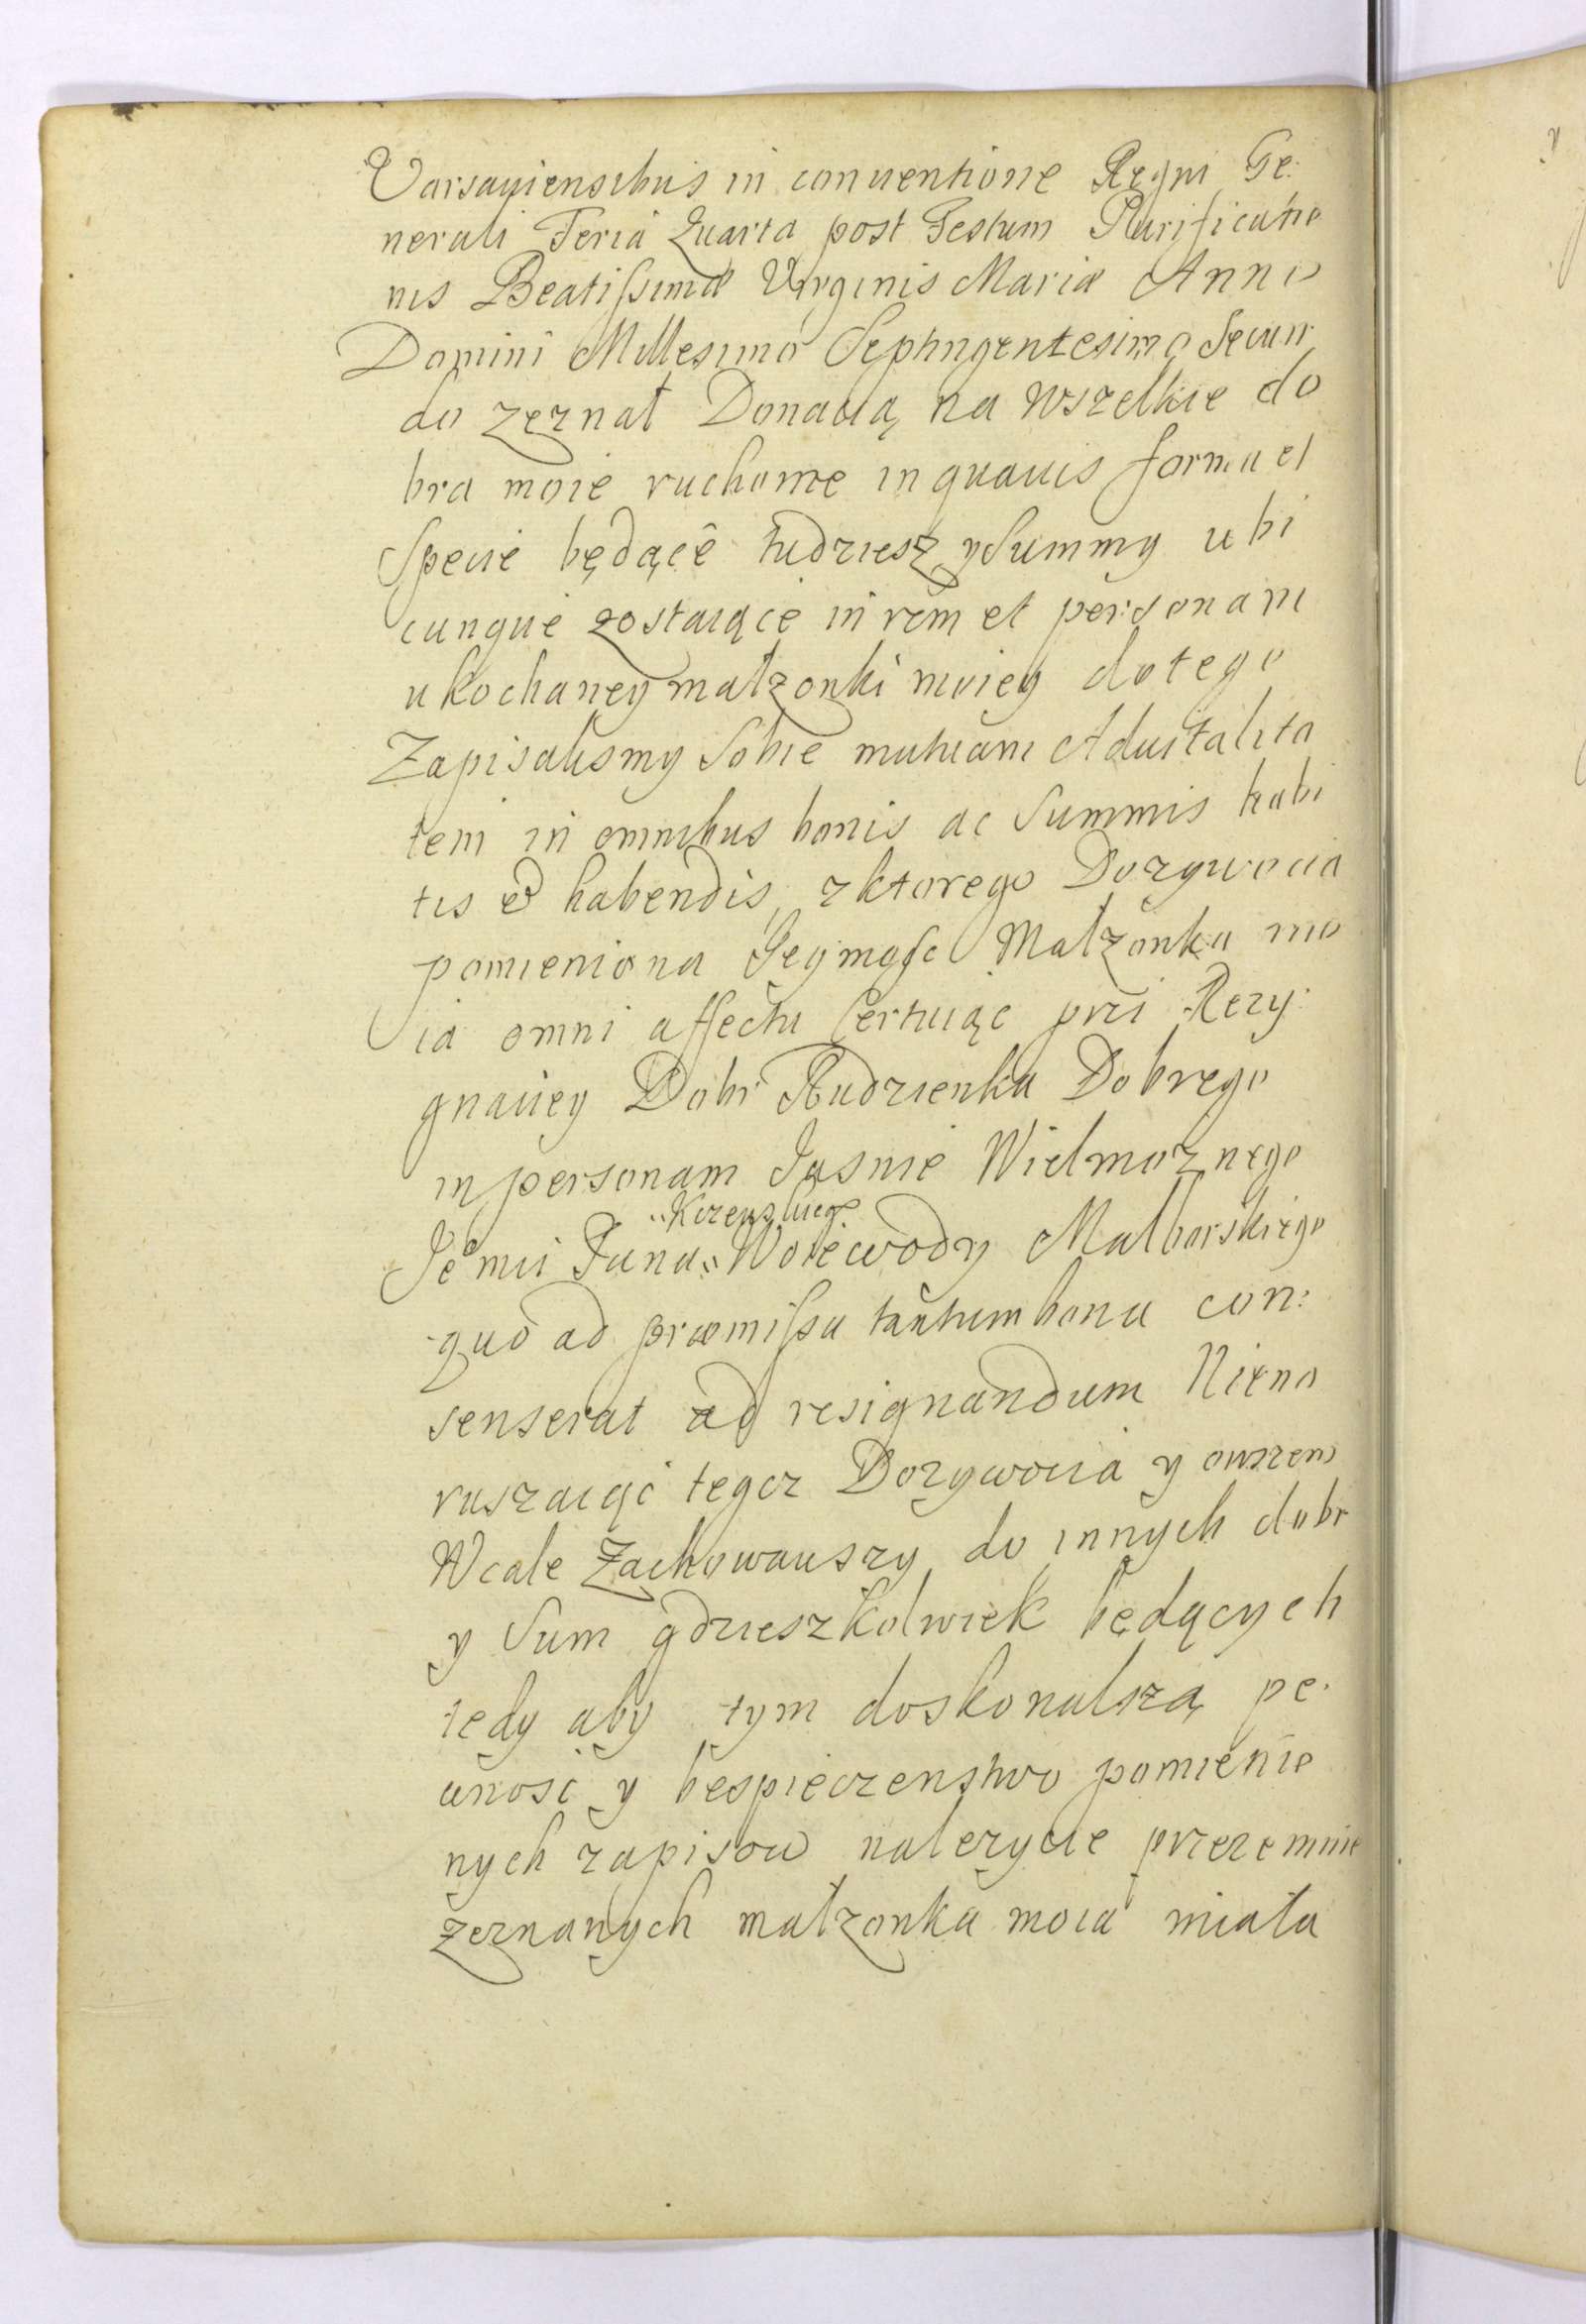 Varsauiensibus in conuentione Regni Ge:
nerali Feria Quarta post Festum Purificatio
nis Beatißimæ Virginis Mariæ Anno
Domini Millesimo Septingentesimo Secun
do zeznał Donacią na wszelkie do
bra moie ruchome in quauis forma et
Specie będące tudziesz y Summy ubi
cunque zostaiące in rem et personam
ukochaney małzonki moiey do tego
Zapisalismy Sobie mutuam Aduitalita
tem in omnibus bonis ac Summis habi
tis & habendis, z ktorego Dozywocia
pomieniona Jeymość Małzonka mo
ia omni affectu Certuiąc przi Rezy:
gnaciey Dobr Rudzienka Dobrego
in personam Jasnie Wielmoznego
„Krzenskiego
Jemci Pana„ Woiewody Malborskiego
quo ad præmißa tantum bona con:
senserat ad resignandum Niena
ruszaiąc tegoz Dozywocia y owszem
Wcale Zachowawszy do innych dobr
y Sum gdzieszkolwiek będących
tedy aby tym doskonalszą pe:
wnosc y bespieczenstwo pomienio
nych zapisow nalezycie przezemnie
zeznanych małzonka moia miała